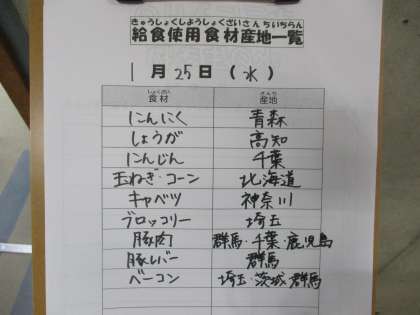 きゅうしょくしようしょくざいさんちいちらん
給食使用食材産地一覧
1月25日(水)
しょくざい さんち
食材 産地
にんにく 青森
しょうが 高知
にんじん 千葉
玉ねぎ・コーン 北海道
キャベツ 神奈川
ブロッコリー 埼玉
豚肉 群馬・千葉・鹿児島
豚レバー 群馬
ベーコン 埼玉・茨城・群馬